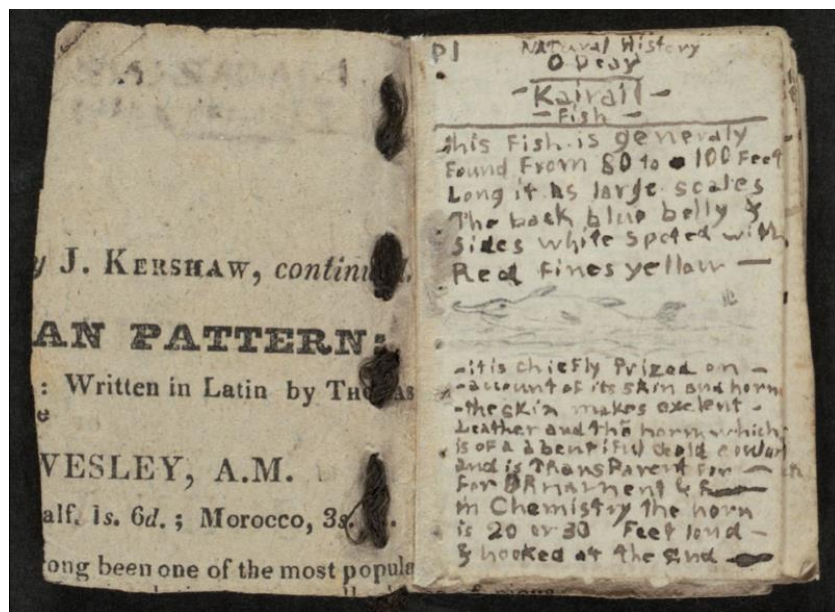 y J. KERSHAW, continued.
AN PATTERN:
: Written in Latin by THOMAS
e
VESLEY, A.M.
alf. 1s. 6d. ; Morocco, 3s.
ong been one of the most popula
P1 NATural History
O Dear
- Kairail -
- Fish -
this Fish is generaly
Found From 80 to 100 Feet
Long it has large scales
The back blue belly &
Sides white Spoted with
Red Fines yellow —
- it is chiefly Prized on -
- account of its skin and horn
- the skin makes exelent -
Leather and the horn which
is of a beutiful Gold coulor
and is TransParent For —
For ORnarnment &
in Chemistry the horn
is 20 or 30 Feet lond -
& hooked at the End